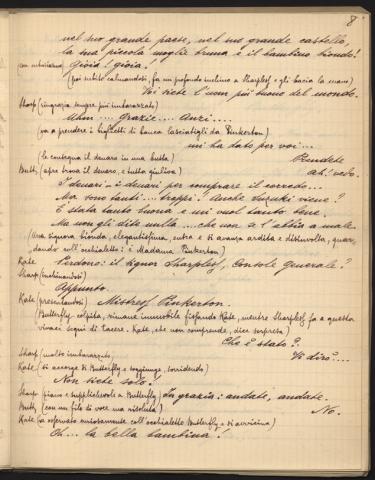 8
nel suo grande paese, nel suo grande castello,
la sua piccola moglie bruna e il bambino biondo!
(con entusiasmo) Gioia! gioia!
(poi subito calmandosi, fa un profondo inchino a Sharpless e gli bacia la mano)
Voi siete l'uom più buono del mondo.
Sharp (ringrazia sempre più imbarazzato)
Ahm .... grazie.... Anzi....
(va a prendere i biglietti di banca lasciatigli da Pinkerton)
mi ha dato per voi....
(le consegna il denaro in una busta) Prendete
Butt (apre trova il denaro, e tutta giuliva) ah! vedo.
I denari - i denari per comprare il corredo...
Ma sono tanti.... troppi! Anche Suzuki viene?
È stata tanto buona e mi vuol tanto bene.
Ma non gli dite nulla .... che non se l'abbia a male.
(Una signora bionda, elegantissima, entra e si avanza ardita e disinvolta, guar-
dando coll'occhialetto: è Madama Pinkerton)
Kate Perdono: il signor Sharpless, Console Generale?
Sharp (inchinandosi)
Appunto.
Kate (presentandosi) Mistress Pinkerton.
(Butterfly, colpita, rimane immobile fissando Kate, mentre Sharpless fa a questa
vivaci segni di tacere. Kate, che non comprende, dice sorpresa)
Che è stato?
Sharp (molto imbarazzato) Vi dirò....
Kate (si accorge di Butterfly e soggiunge, sorridendo)
Non siete solo?
Sharp (piano e supplichevole a Butterfly) In grazia: andate, andate.
Butt (con un filo di voce ma risoluta) No.
Kate (ha osservato curiosamente coll'occhialetto Butterfly e si avvicina)
Oh... la bella bambina!